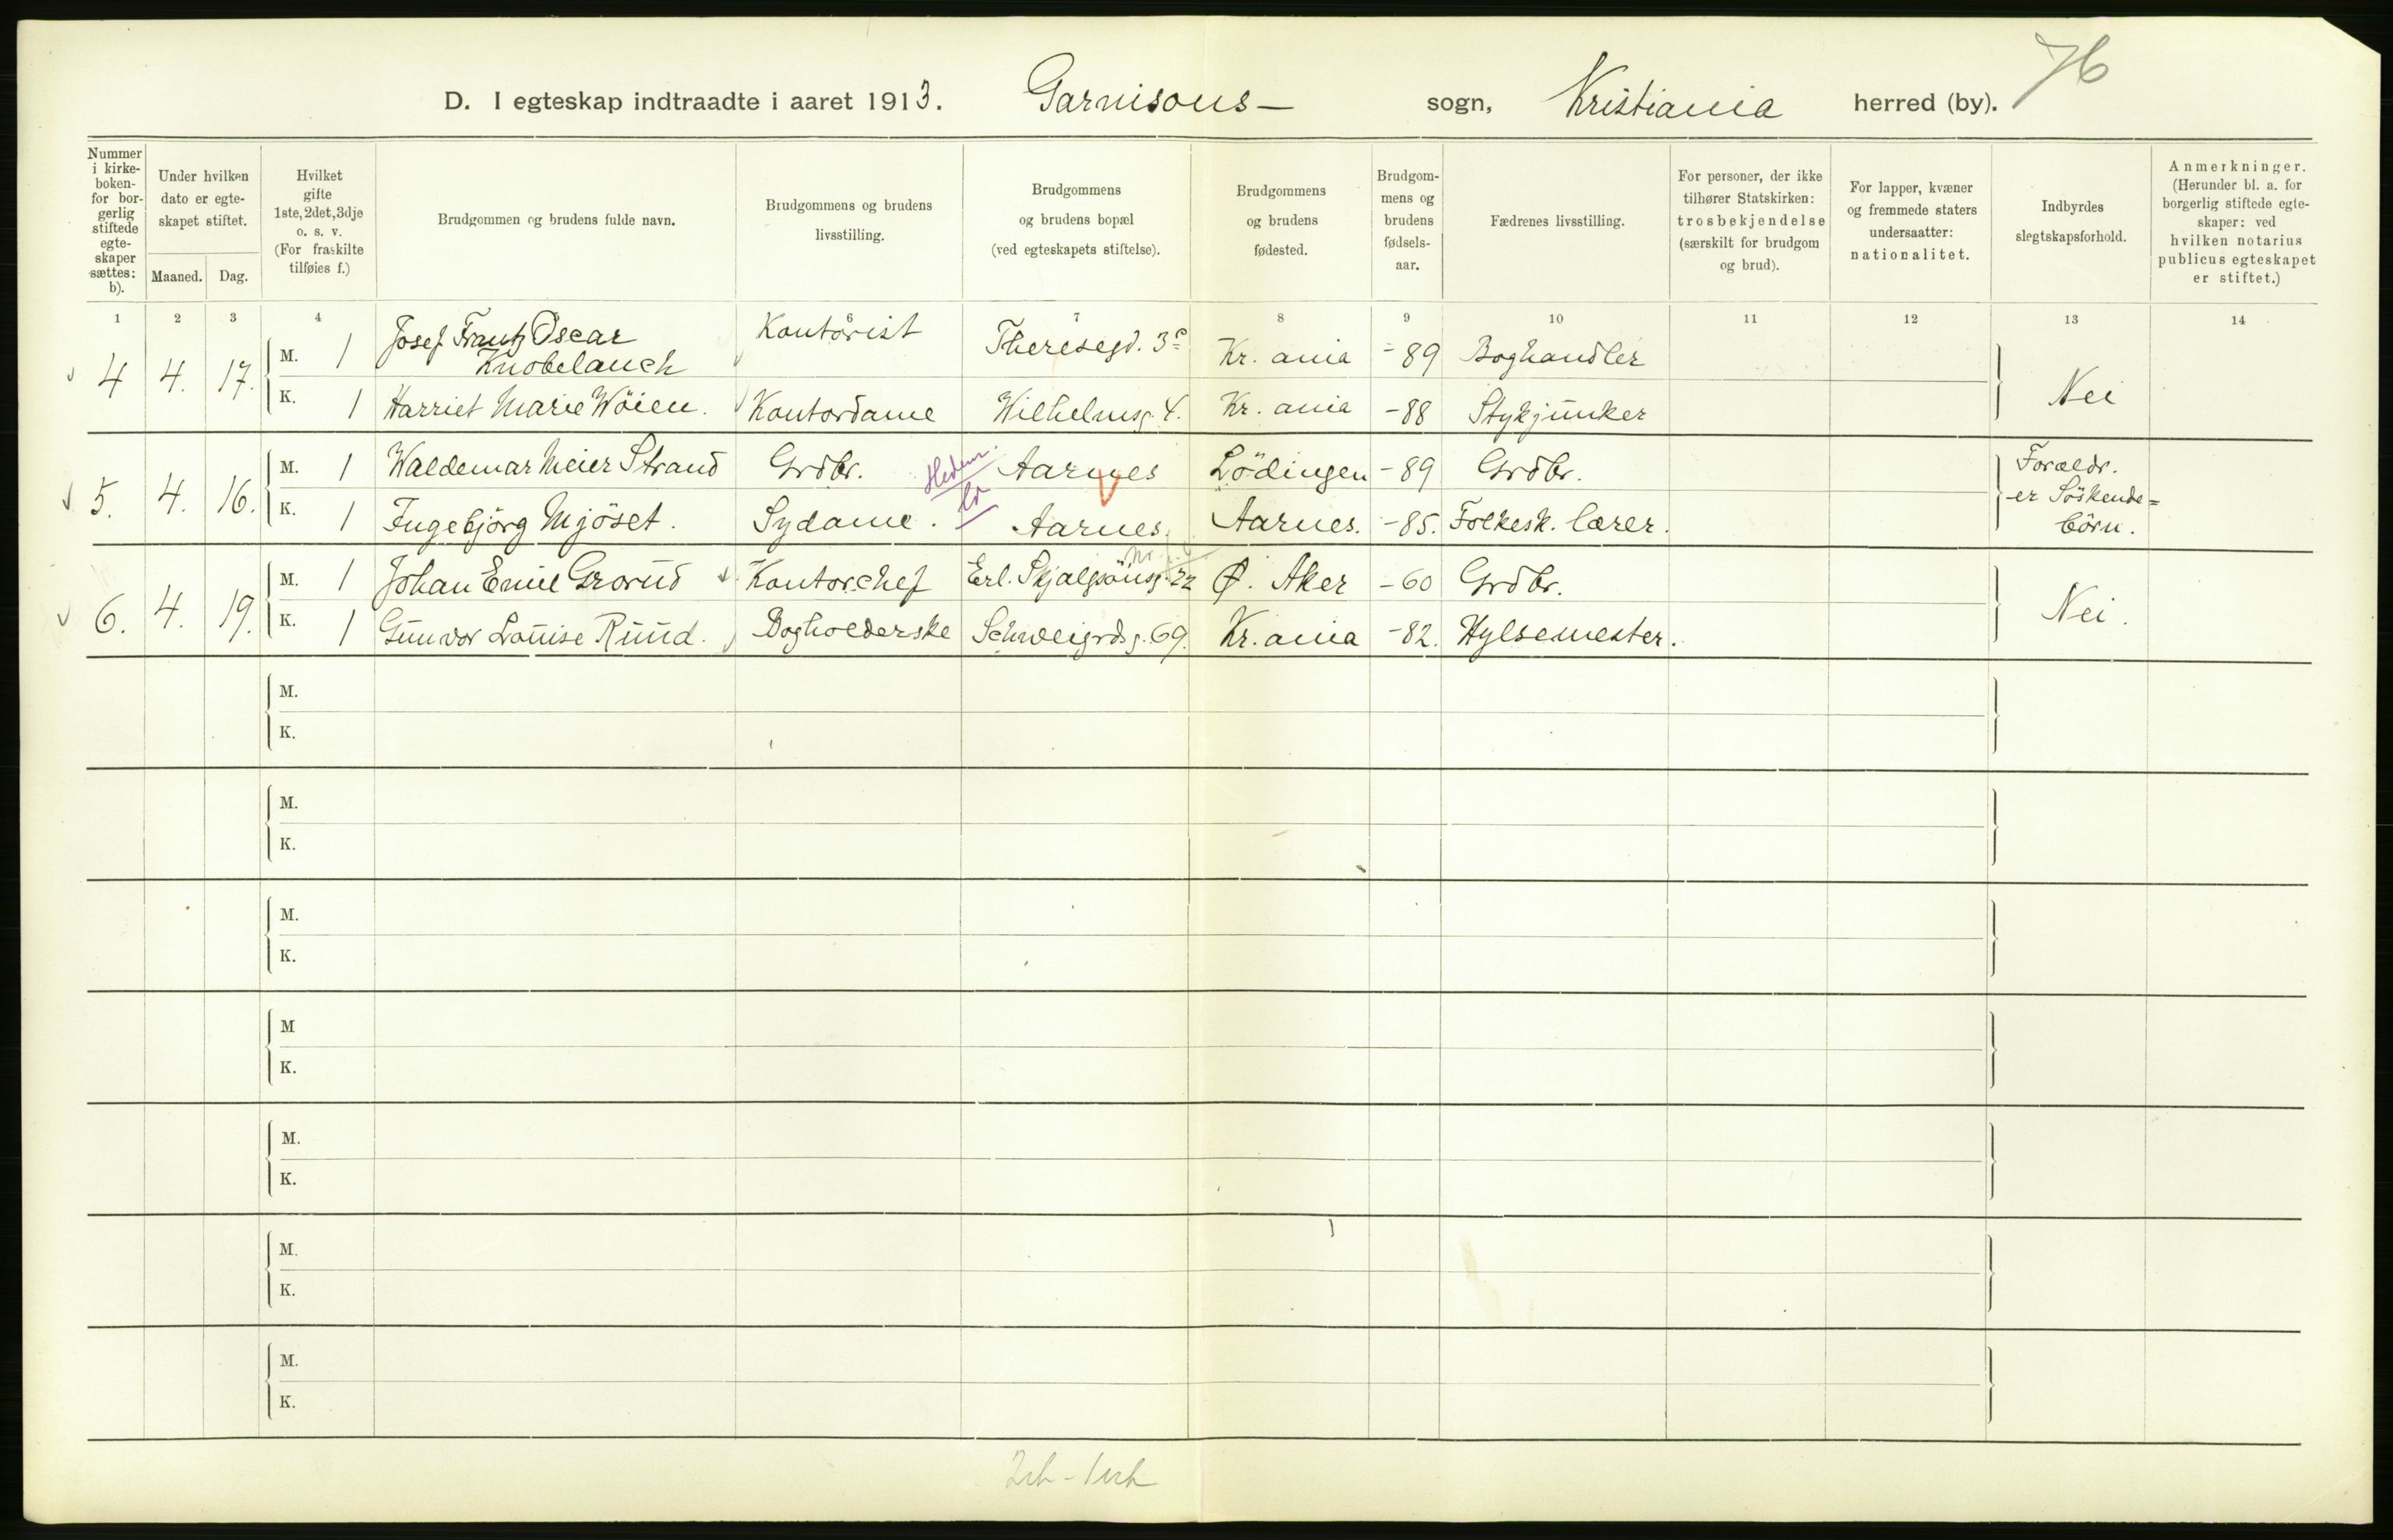 76
D. I egteskap indtraadte i aaret 1913. Garnisons- sogn, Kristiania herred (by).
Nummer i kirke-boken- for bor-gerlig stiftede egte-skaper sættes: b).
Under hvilken dato er egte-skapet stiftet.
Maaned. Dag.
Hvilket gifte 1ste, 2det, 3dje o. s. v. (For fraskilte tilføies f.)
Brudgommen og brudens fulde navn.
Brudgommens og brudens livsstilling.
Brudgommens og brudens bopæl (ved egteskapets stiftelse).
Brudgommens og brudens fødested.
Brudgom-mens og brudens fødsels-aar.
Fædrenes livsstilling.
For personer, der ikke tilhører Statskirken: trosbekjendelse (særskilt for brudgom og brud).
For lapper, kvæner og fremmede staters undersaatter: nationalitet.
Indbyrdes slegtskapsforhold.
Anmerkninger. (Herunder bl. a. for borgerlig stiftede egte-skaper: ved hvilken notarius publicus egteskapet er stiftet.)
1 2 3 4 6 7 8 9 10 11 12 13 14
4 4. 17. M. 1 Josef Frantz Oscar Knobelauch Kontorist Theresegd. 3c Kr. ania -89 Boghandler
K. 1 Harriet Marie Wöien. Kontordame Wilhelmsg. 4. Kr. ania -88 Stykjunker Nei
5. 4. 16. M. 1 Waldemar Meier Strand Grdbr. Aarnes Lödingen -89 Grdbr. Forældr.
er Söskende=
börn.
K. 1 Ingebjörg Mjöset. Sydame. Aarnes. Aarnes. -85. Folkesk. lærer.
Hedem.
6. 4. 19. M. 1 Johan Emil Grorud Kontorchef Erl. Skjalgsönsg. 22 Ø. Aker -60 Grdbr.
K. 1 Gunvor Louise Ruud. Bogholderske Schweigrdsg. 69. Kr. ania -82. Hylsemester. Nei.
M.
K.
M.
K.
M.
K.
M
K.
M.
K.
M.
K.
M.
K.